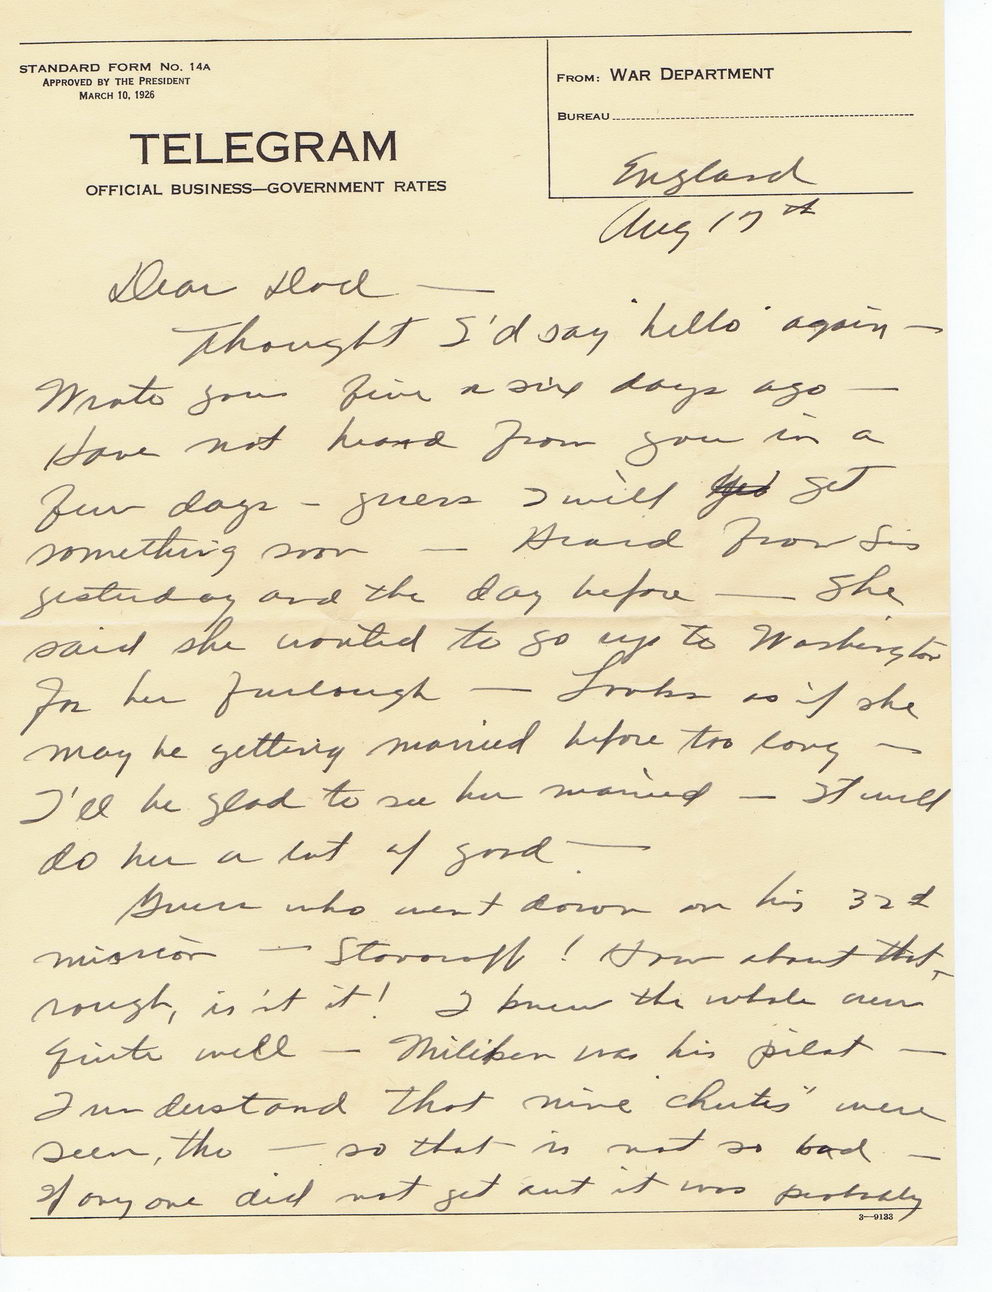 STANDARD FORM No. 14A
APPROVED BY THE PRESIDENT
MARCH 10, 1926
TELEGRAM
OFFICIAL BUSINESS—GOVERNMENT RATES
FROM: WAR DEPARTMENT
BUREAU
England
Aug 17th
Dear Dad —
Thought I'd say "hello" again —
Wrote you five or six days ago —
Have not heard from you in a
few days – guess I will get
something soon — Heard from Sis
yesterday and the day before — She
said she wanted to go up to Washington
for her furlough — Looks as if she
may be getting married before too long —
I'll be glad to see her married — It will
do her a lot of good —
Guess who went down on his 32d
mission — ! How about that,
rough, is'nt it! I knew the whole crew
quite well — Miliken was his pilot —
I understand that nine "chutes" were
seen, tho — so that is not so bad —
If anyone did not get out it was probably
3—9133